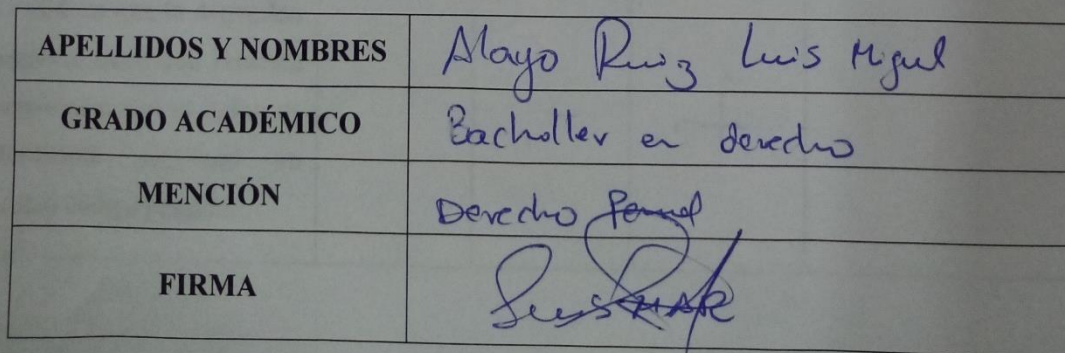 APELLIDOS Y NOMBRES Alayo Ruiz Luis Miguel
GRADO ACADÉMICO Bacholler en derecho
MENCIÓN Derecho Penal
FIRMA